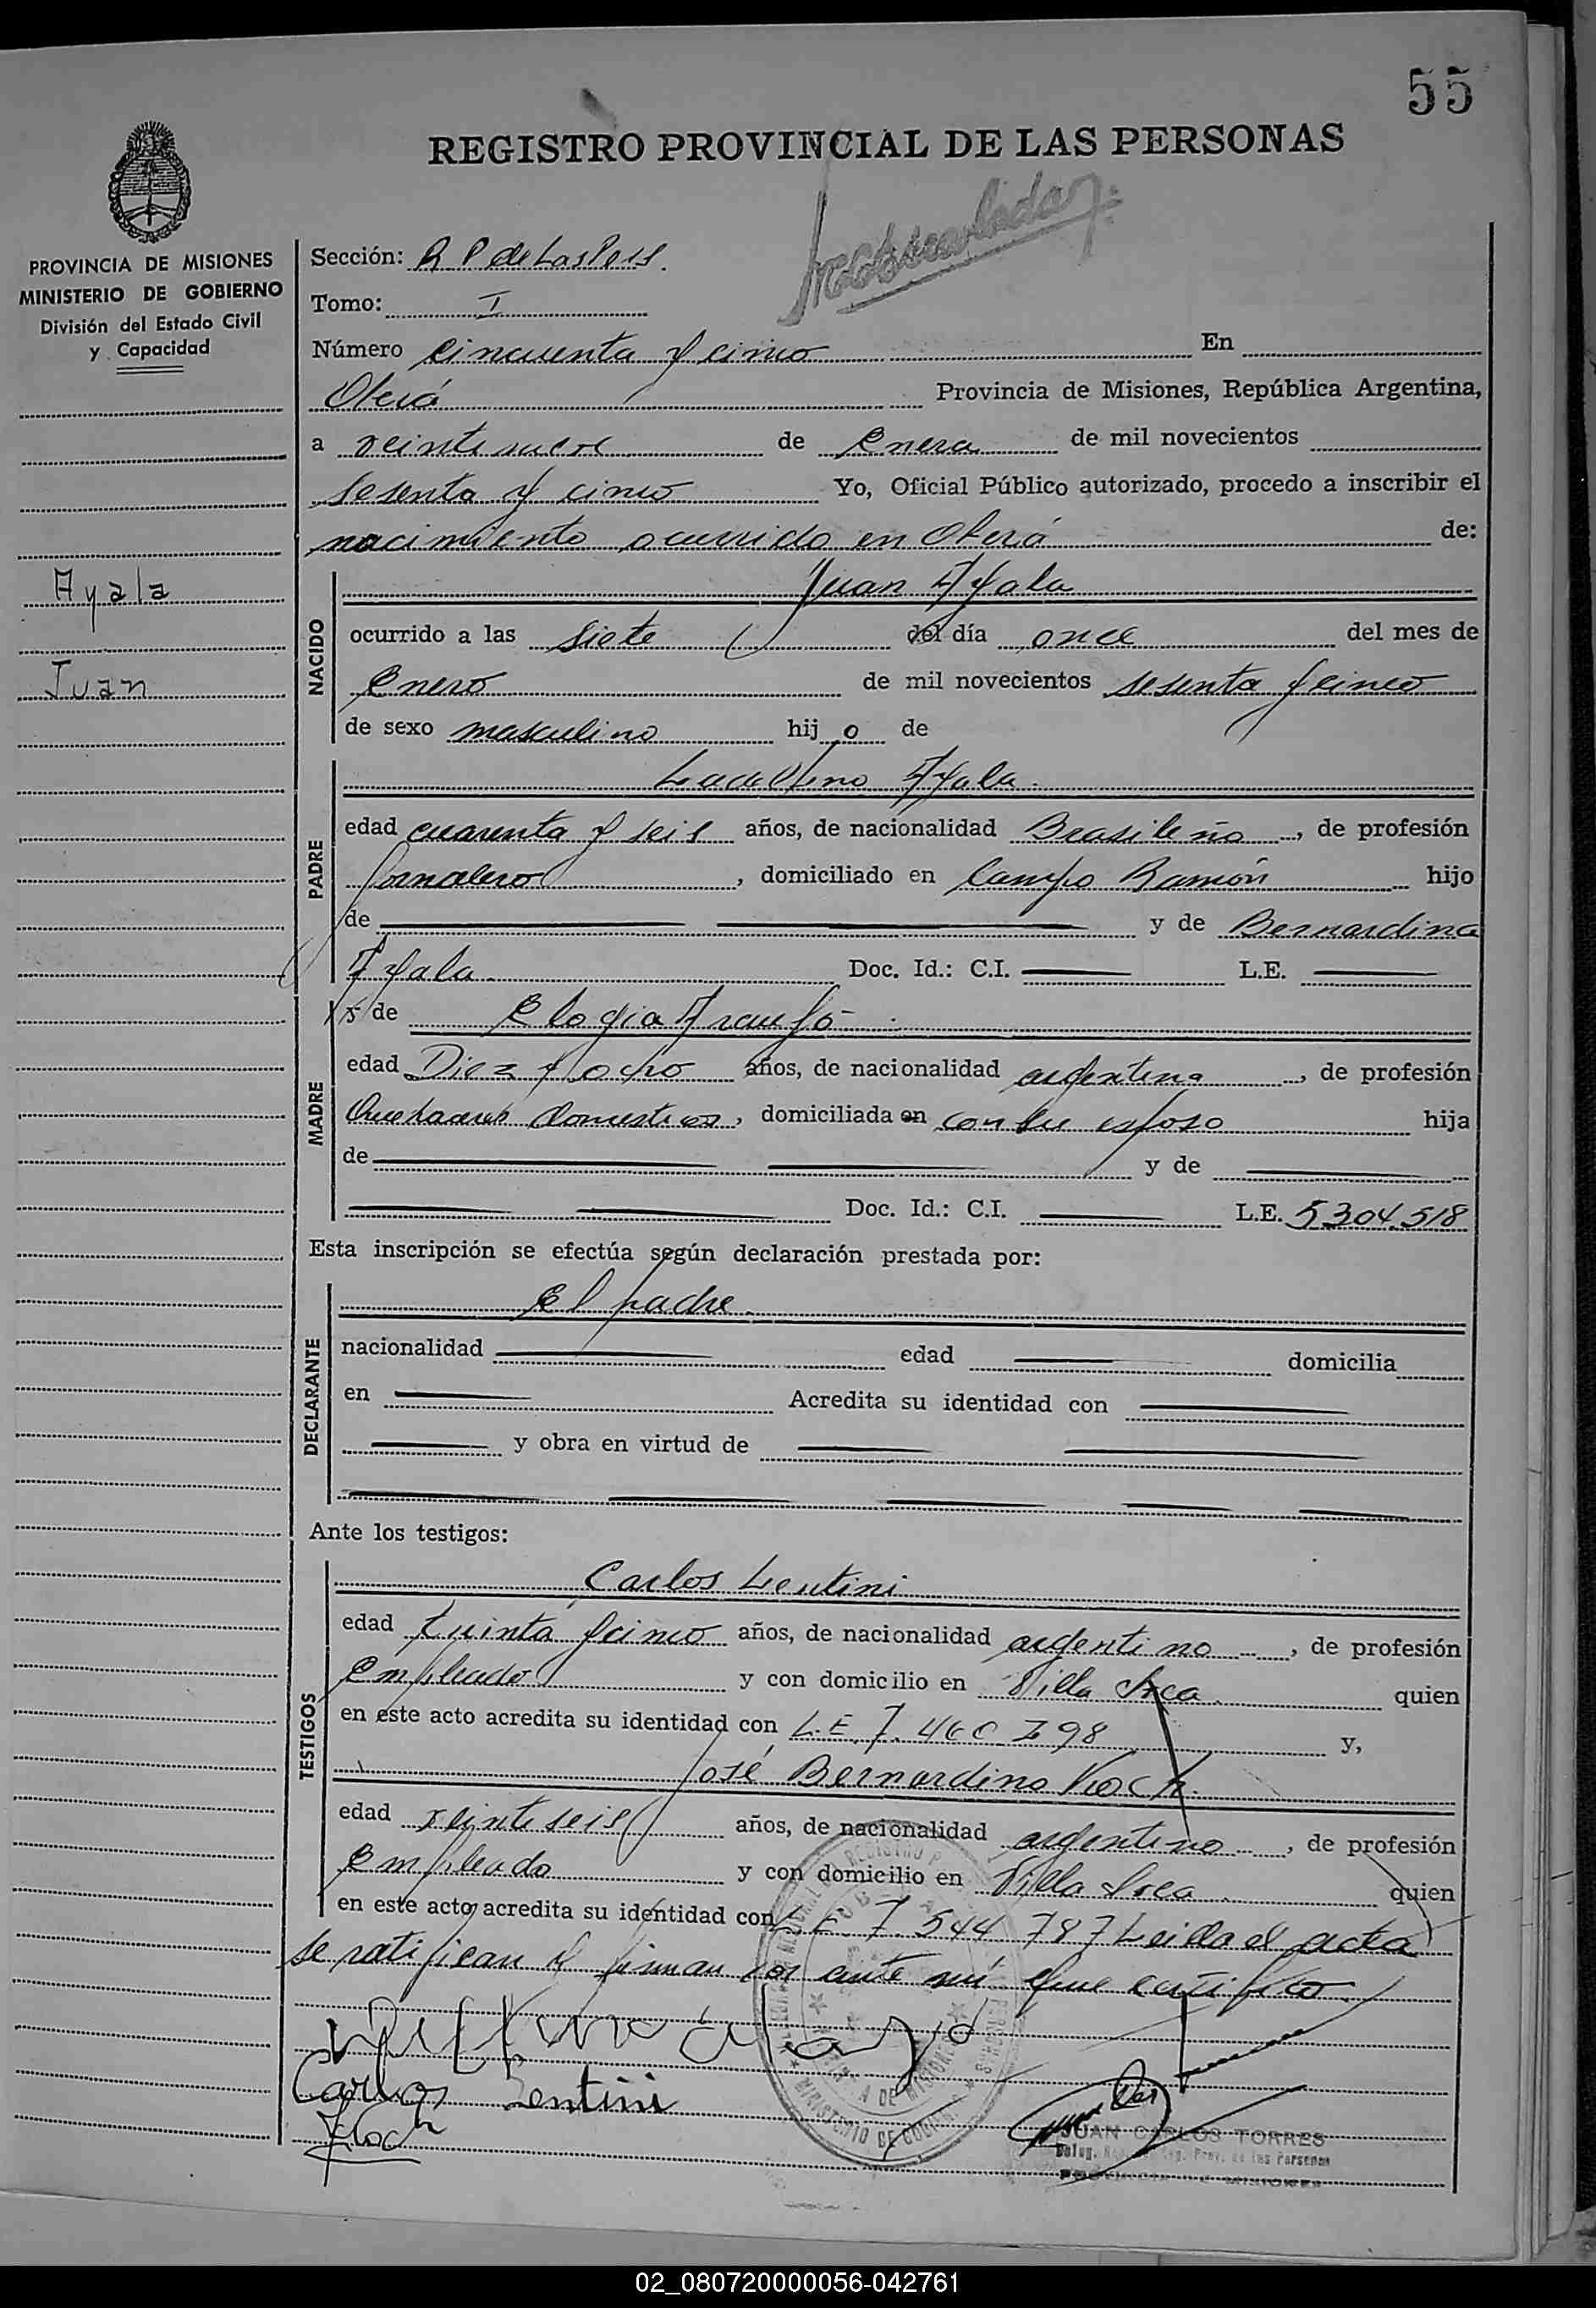 55
REGISTRO PROVINCIAL DE LAS PERSONAS
PROVINCIA DE MISIONES
MINISTERIO DE GOBIERNO
División del Estado Civil
y Capacidad
Ayala
Juan
Sección: R P de Las Pers.
Tomo: I
Número cincuenta y cinco En
Oberá Provincia de Misiones, República Argentina,
a veintinueve de Enero de mil novecientos
sesenta y cinco Yo, Oficial Público autorizado, procedo a inscribir el
nacimiento ocurrido en Oberá de:
NACIDO
Juan Ayala
ocurrido a las siete del día once del mes de
Enero de mil novecientos sesenta y cinco
de sexo masculino hijo de
PADRE
Ayala
edad cuarenta y seis años, de nacionalidad Brasileño, de profesión
Jornalero, domiciliado en Campo Ramón hijo
de y de Bernardina
Ayala Doc. Id.: C.I. L.E.
MADRE
y de
edad Diez y ocho años, de nacionalidad argentina, de profesión
Quehaceres domesticos, domiciliada en con su esposo hija
de y de
Doc. Id.: C.I. L.E. 5304.518
Esta inscripción se efectúa según declaración prestada por:
DECLARANTE
El padre
nacionalidad edad domicilia
en Acredita su identidad con
y obra en virtud de
Ante los testigos:
TESTIGOS
Carlos Lentini
edad treinta y cinco años, de nacionalidad argentino, de profesión
Empleado y con domicilio en Villa quien
en este acto acredita su identidad con L.E. 7. y,
José Bernardino Koch
edad veinteseis años, de nacionalidad argentino, de profesión
Empleado y con domicilio en Villa quien
en este acto acredita su identidad con L.E. 7.544 787 Leida el acta
se ratifican y firman por ante mí que certifico.
Carlos Lentini
Koch
JUAN CARLOS TORRES
02_080720000056-042761